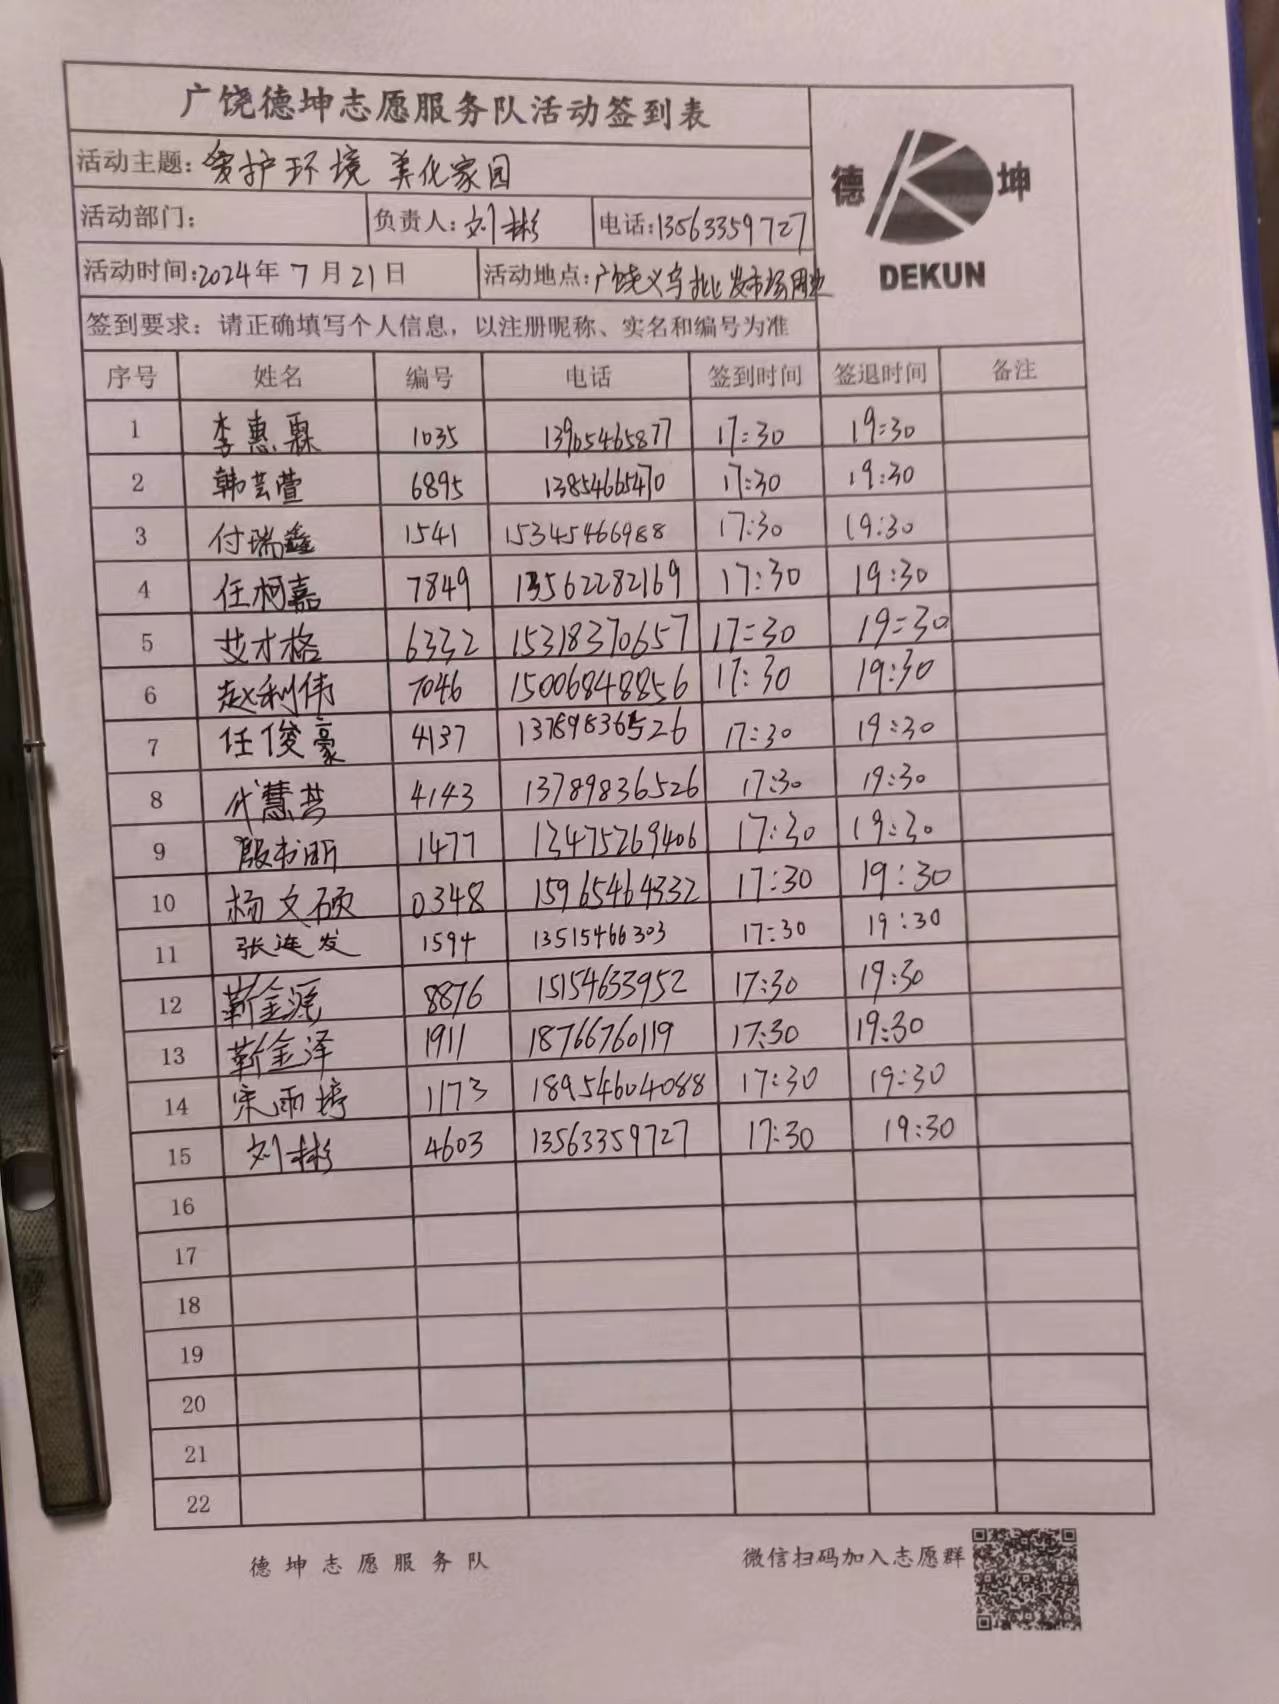 广饶德坤志愿服务队活动签到表
德 坤
DEKUN
活动主题：爱护环境 美化家园
活动部门： 负责人：刘彬 电话：13563359727
活动时间：2024年7月21日 活动地点：广饶义乌批发市场周边
签到要求：请正确填写个人信息，以注册昵称、实名和编号为准
序号 姓名 编号 电话 签到时间 签退时间 备注
1 李惠霖 1035 13905465877 17:30 19:30
2 韩芸萱 6895 13854665470 17:30 19:30
3 付瑞鑫 1541 15345466988 17:30 19:30
4 任柯嘉 7849 13562282169 17:30 19:30
5 艾才格 6332 15318370657 17:30 19:30
6 赵利伟 7046 15006848856 17:30 19:30
7 任俊豪 4137 13789836526 17:30 19:30
8 代慧芸 4143 13789836526 17:30 19:30
9 殷书昕 1477 13475269406 17:30 19:30
10 杨文硕 0348 15965464332 17:30 19:30
11 张连发 1594 13515466303 17:30 19:30
12 靳金源 8876 15154633952 17:30 19:30
13 靳金泽 1911 18766760119 17:30 19:30
14 宋雨婷 1173 18954604088 17:30 19:30
15 刘彬 4603 13563359727 17:30 19:30
16
17
18
19
20
21
22
德坤志愿服务队 微信扫码加入志愿群